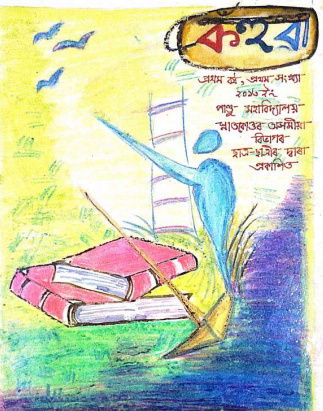 কহুৱা
প্ৰথম বৰ্ষ, প্ৰথম সংখ্যা
২০১৬ ইং
পাণ্ডু মহাবিদ্যালয়
স্নাতকোত্তৰ অসমীয়া
বিভাগৰ
ছাত্ৰ-ছাত্ৰীৰ দ্বাৰা
প্ৰকাশিত